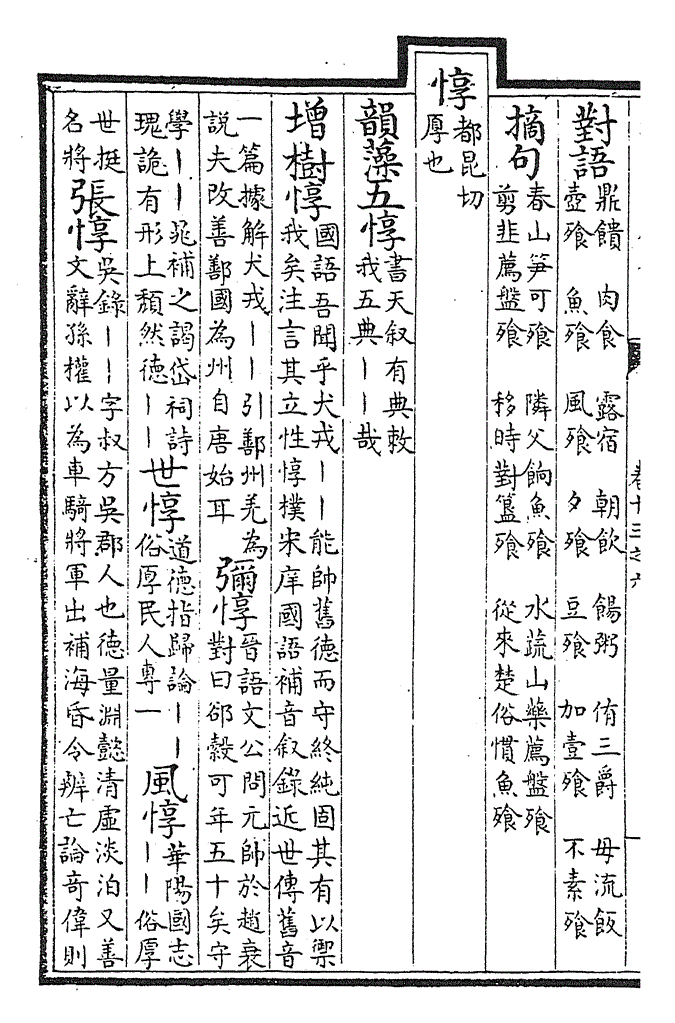 卷十三之六
對語 鼎饋 肉食 露宿 朝飲 餳粥 侑三爵 毋流飯
壺飱 魚飱 風飱 夕飱 豆飱 加壹飱 不素飱
摘句 春山笋可飱 隣父餉魚飱 水蔬山藥薦盤飱
剪韭薦盤飱 移時對簋飱 從來楚俗慣魚飱
惇 都昆切
厚也
韻藻五惇 書天叙有典敕
我五典丨丨哉
增樹惇 國語吾聞乎犬戎丨丨能帥舊德而守終純固其有以禦
我矣注言其立性惇樸宋庠國語補音叙錄近世傳舊音
一篇據解犬戎丨丨引鄯州羌為
說夫改善鄯國為州自唐始耳
彌惇 晉語文公問元帥於趙衰
對曰郤縠可年五十矣守
學丨丨晁補之謁岱祠詩
瑰詭有形上頹然德丨丨
世惇 道德指歸論丨丨
俗厚民人專一
風惇 華陽國志
丨丨俗厚
世挺
名將
張惇 吳錄丨丨字叔方吳郡人也德量淵懿清虛淡泊又善
文辭孫權以為車騎將軍出補海昏令辨亡論竒偉則